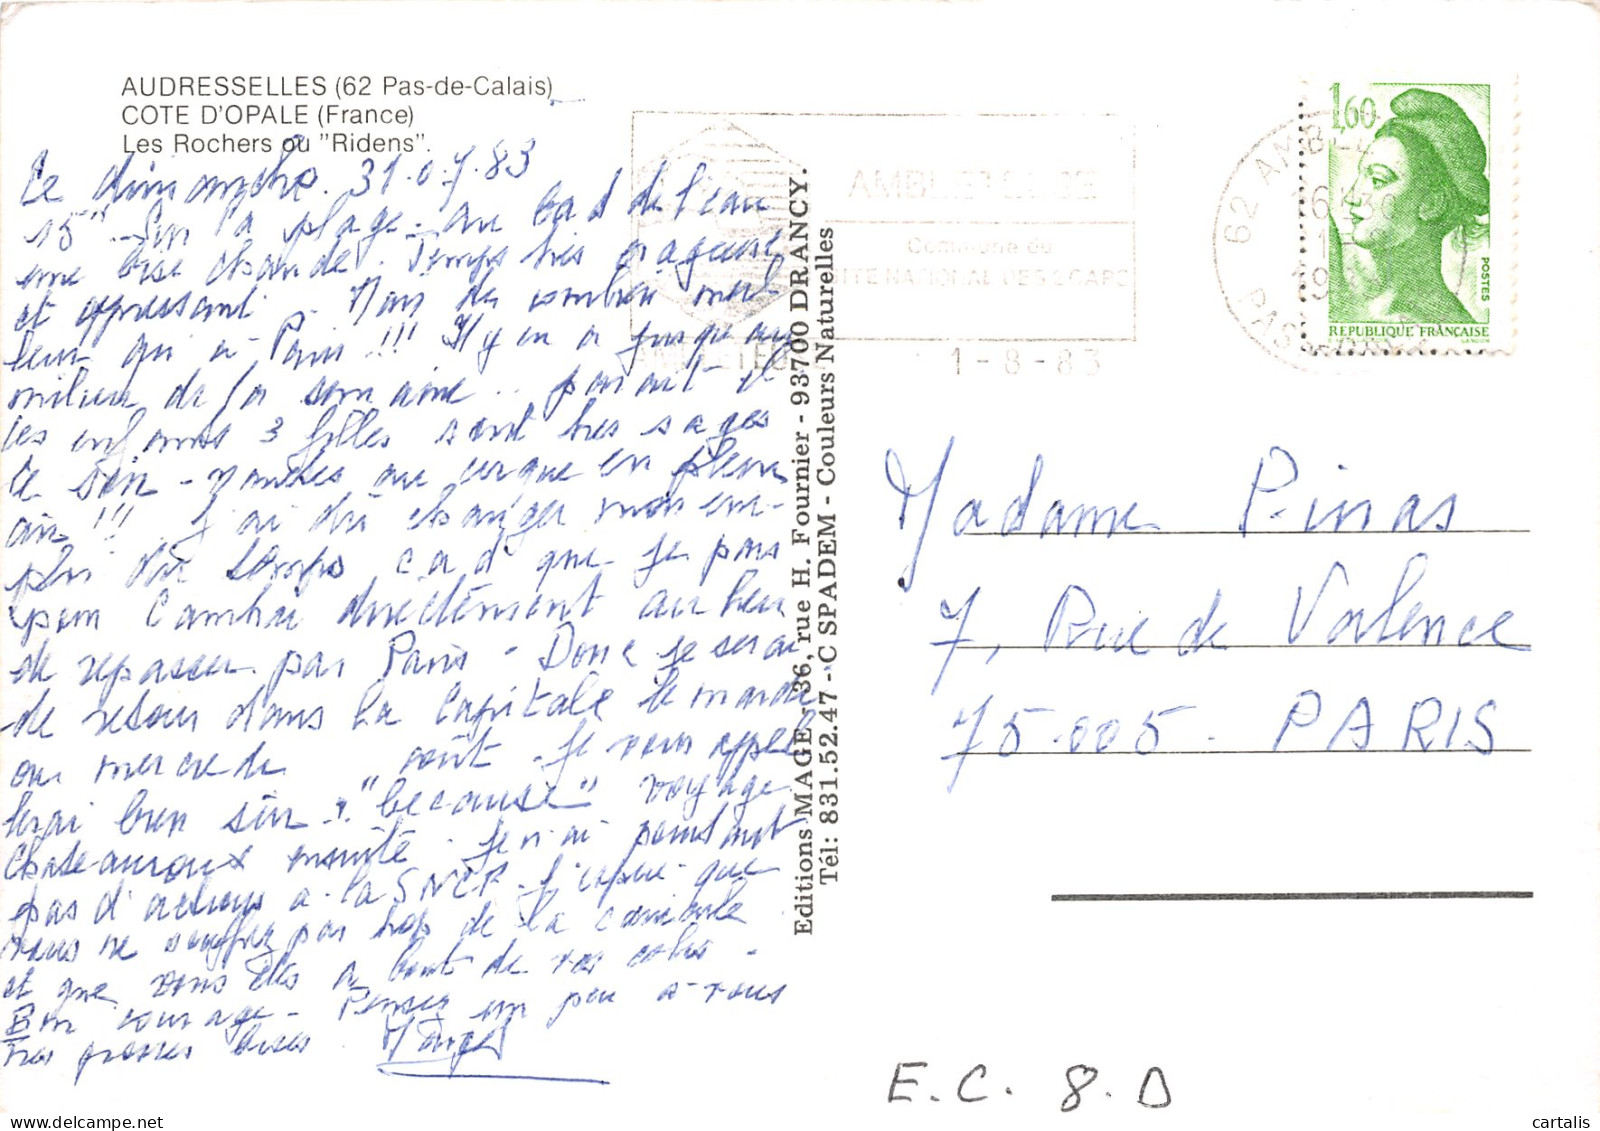 AUDRESSELLES (62 Pas-de-Calais)
COTE D'OPALE (France)
Les Rochers ou "Ridens".
Le dimanche. 31.07.83
15h. Sur la plage - au bord de l'eau
une bise chaude. Temps très orageux
et oppressant. Mais de combien meil-
leur qu'à Paris !!! Il y en a jusqu'au
milieu de la semaine .. parait-il
les enfants 3 filles sont très sages
Ce soir - au cirque en plein
air !!! J'ai dû changer mon em-
ploi du temps càd que je pars
pour Cambrai directement au lieu
de repasser par Paris - Donc je serai
de retour dans la Capitale le mardi
ou mercredi août. Je vous appel-
lerai bien sûr "because" voyage
Chateauroux ensuite. Je n'ai pourtant
pas d'actions à la SNCF. J'espère que
vous ne souffrez pas trop de la canicule
et que vous êtes à bout de vos colis -
Bon courage - Pensez un peu à vous
Très grosses bises.
Editions MAGE - 36, rue H. Fournier - 93700 DRANCY.
Tél: 831.52.47 - C SPADEM - Couleurs Naturelles
AMBLETEUSE
Commune du
SITE NATIONAL DES 2 CAPS
AMBLETEUSE
1-8-83
62 AMBLE
PAS
1,60
POSTES
REPUBLIQUE FRANÇAISE
GANDON
Madame Pinas
7, Rue de Valence
75.005 - PARIS
E.C. 8.D
cartalis